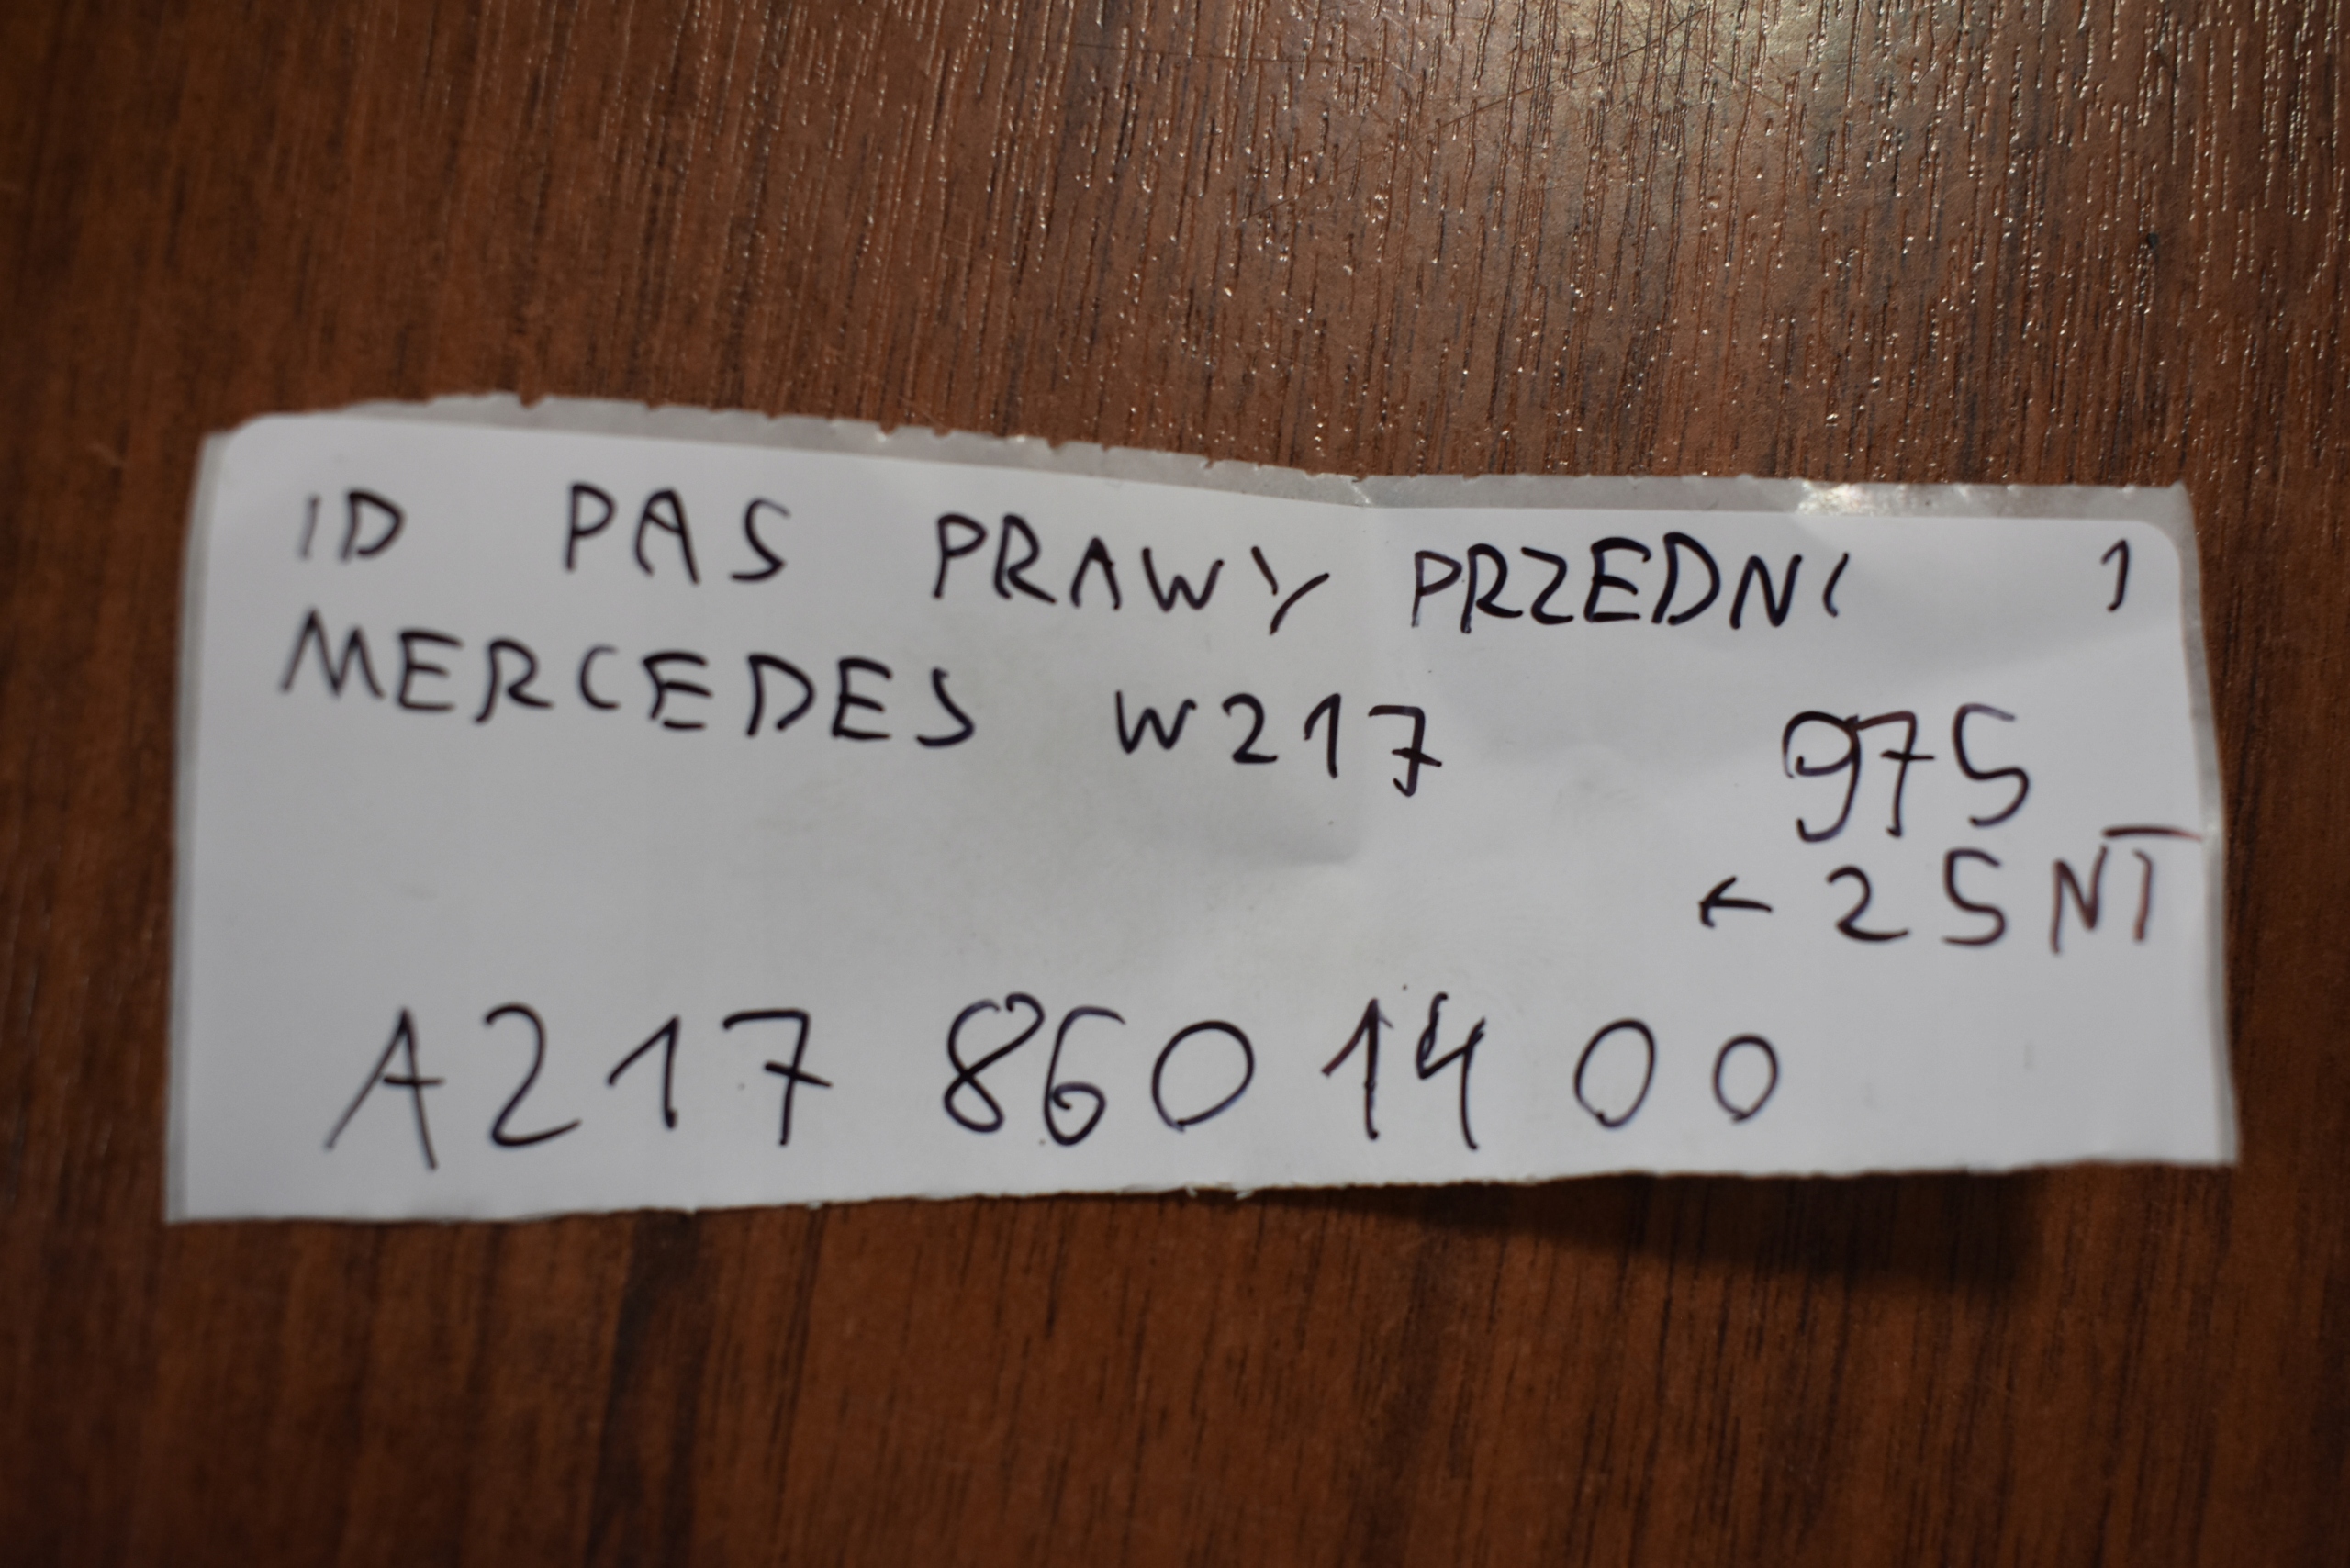 ID PAS PRAWY PRZEDNI 1
MERCEDES W217 975
← 25 NT
A217 860 14 00